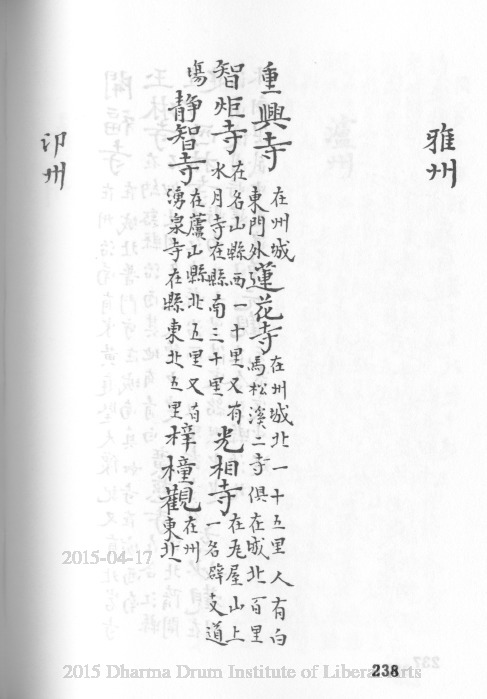 雅州
重興寺在州城東門外蓮花寺在州城北一十五里人有白馬松溪二寺俱在城北百里
智炬寺在名山縣西一十里又有水月寺在縣南三十里光相寺在瓦屋山上一名辟支道
場靜智寺在蘆山縣北五里又有湧泉寺在縣東北五里梓橦觀在州東北
卬州
2015-04-17
2015 Dharma Drum Institute of Liberal Arts
238